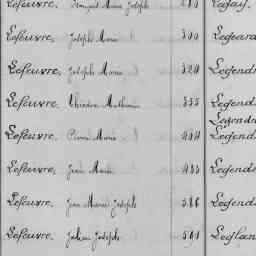 Lefeuvre. François Marie Joseph Legay.
Lefeuvre. Joseph Marie 300 Legeard
Lefeuvre. Joseph Marie 320 Legendr
Lefeuvre. Théodore Mathurin 355 Legend
Legendre
Lefeuvre. Pierre Marie 404 Legend
Lefeuvre. Jean Marie 483 Legend
Lefeuvre. Jean Marie Joseph 586 Legend
Lefeuvre. Julien Joseph 591 Leglan